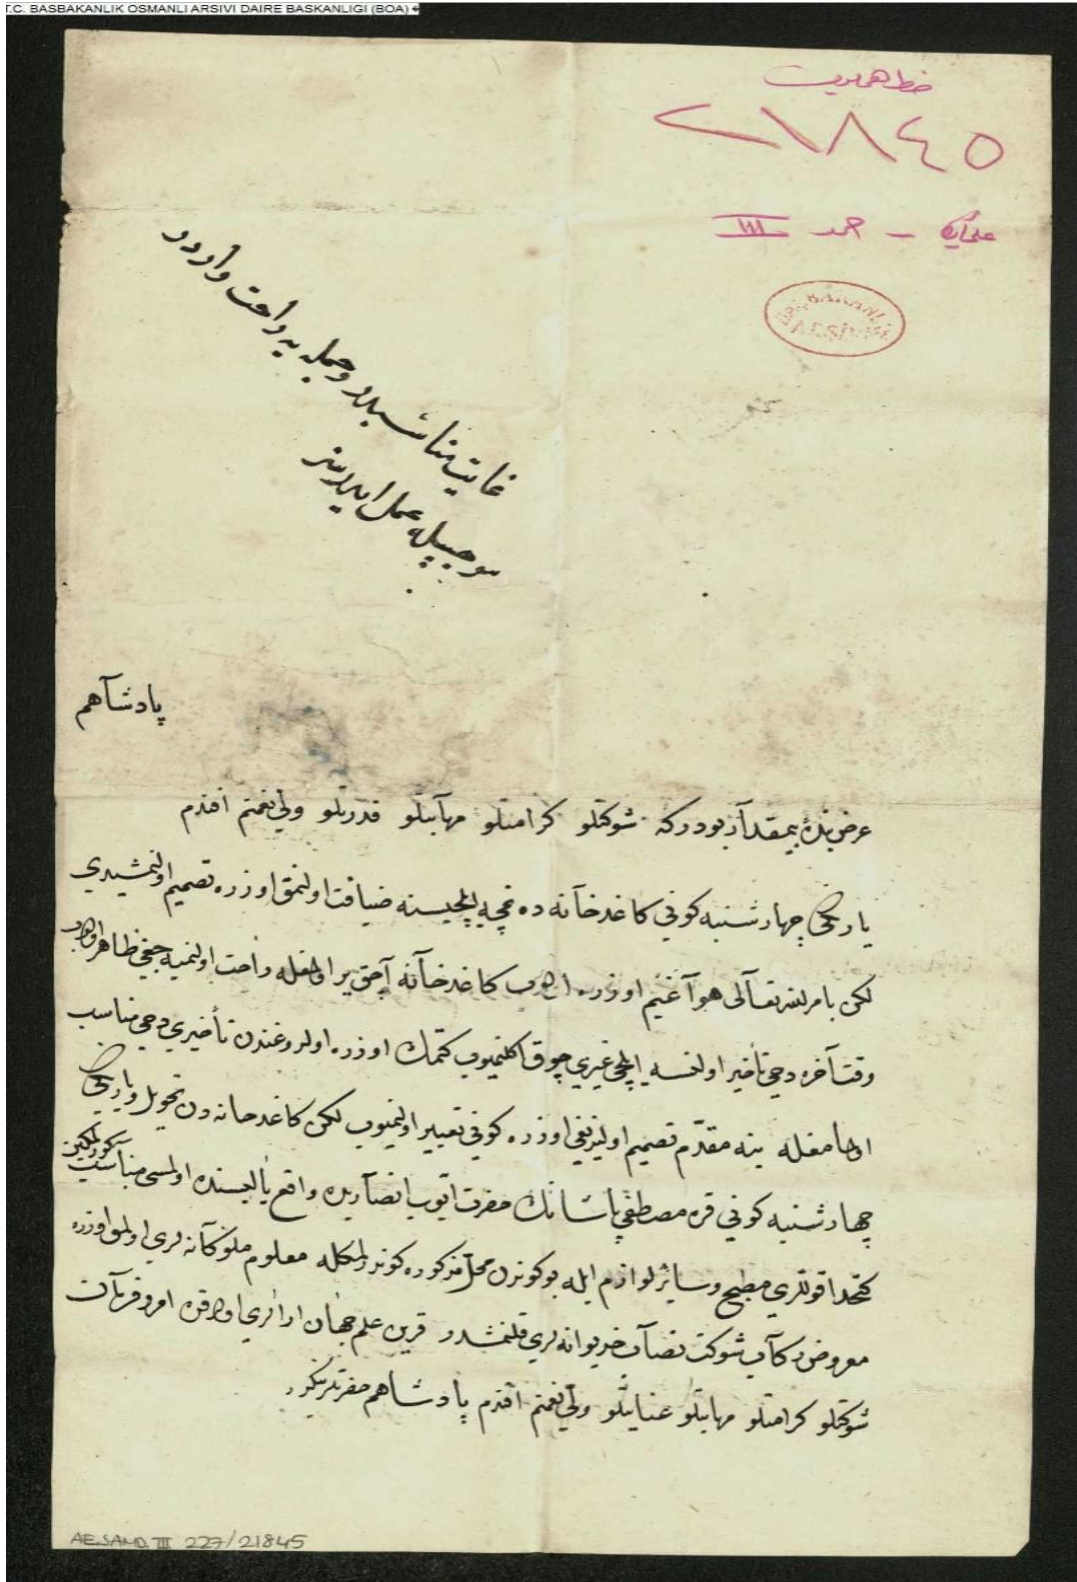 T.C. BASBAKANLIK OSMANLI ARSIVI DAIRE BASKANLIGI (BOA)
خط همایون
٢١٨٤٥
احمد III
غایت مناسبدر و جمله یه راحت واردر
موجبیله عمل ایلیه سز
پادشاهم
عرض بندهٔ بیمقدار بودركه شوكتلو كرامتلو مهابتلو قدرتلو ولی نعمتم افندم
یارینكی چهارشنبه كونی كاغدخانه ده نمچه ایلچیسنه ضیافت اولنمق اوزره تصمیم اولنمشیدی
لكن بامر الله تعالی هوا غیم اوزره اولوب كاغدخانه آچق یر اولمغله راحت اولنمیه جغی ظاهر اولوب
وقت آخره دخی تأخیر اولنسه ایلچی غیری چوق اكلنمیوب كتمك اوزره اولدوغندن تأخیری دخی مناسب
اولمامغله ینه مقدم تصمیم اولندیغی اوزره كونی تغییر اولنمیوب لكن كاغدخانه دن تحویل و یارینكی
چهارشنبه كونی قره مصطفی پاشانك حضرت ایوب انصاریده واقع یالیسنده اولمسی مناسب كورلمكین
كتخدا قوللری مطبخ و سائر لوازم ایله بوكوندن محل مذكوره كوندرلمكله معلوم ملوكانه لری اولمق اوزره
معروض ركاب شوكت نصاب خدیوانه لری قلنمشدر قرین علم جهان ارالری اولدقده امر و فرمان
شوكتلو كرامتلو مهابتلو عنایتلو ولی نعمتم افندم پادشاهم حضرتلرینكدر
AE.SAMD.III 227/21845